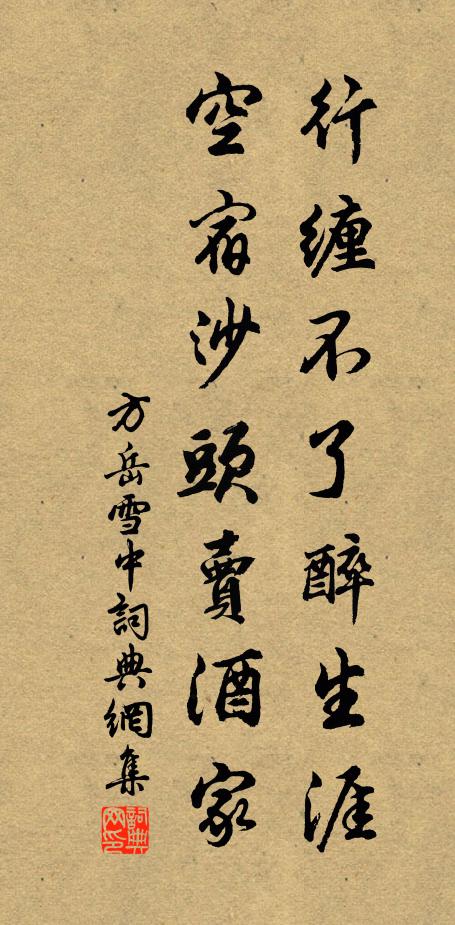 行纏不了醉生涯
空宿沙頭賣酒家
方岳雪中詞典網集
詞典网印